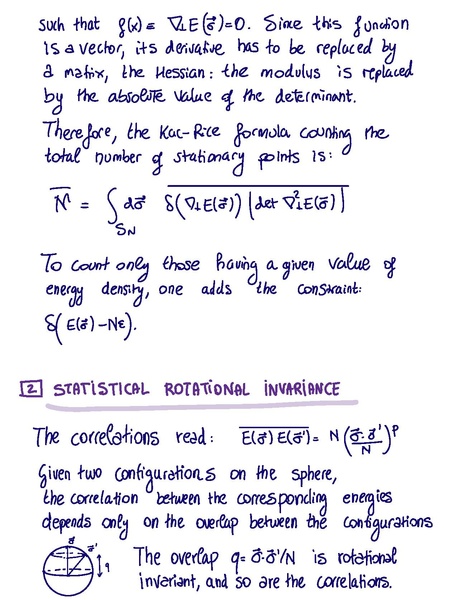 such that f(x) = ∇⊥E(σ⃗)=0. Since this function
is a vector, its derivative has to be replaced by
a matrix, the Hessian: the modulus is replaced
by the absolute value of the determinant.
Therefore, the Kac-Rice formula counting the
total number of stationary points is:
N̅ = ∫_{S_N} dσ⃗ \overline{δ(∇⊥E(σ⃗)) |det ∇²⊥E(σ⃗)|}
To count only those having a given value of
energy density, one adds the constraint:
δ(E(σ⃗)-Nε).
2 STATISTICAL ROTATIONAL INVARIANCE
The correlations read: \overline{E(σ⃗) E(σ⃗')} = N (σ⃗·σ⃗'/N)^p
Given two configurations on the sphere,
the correlation between the corresponding energies
depends only on the overlap between the configurations
σ⃗ σ⃗' q
The overlap q=σ⃗·σ⃗'/N is rotational
invariant, and so are the correlations.